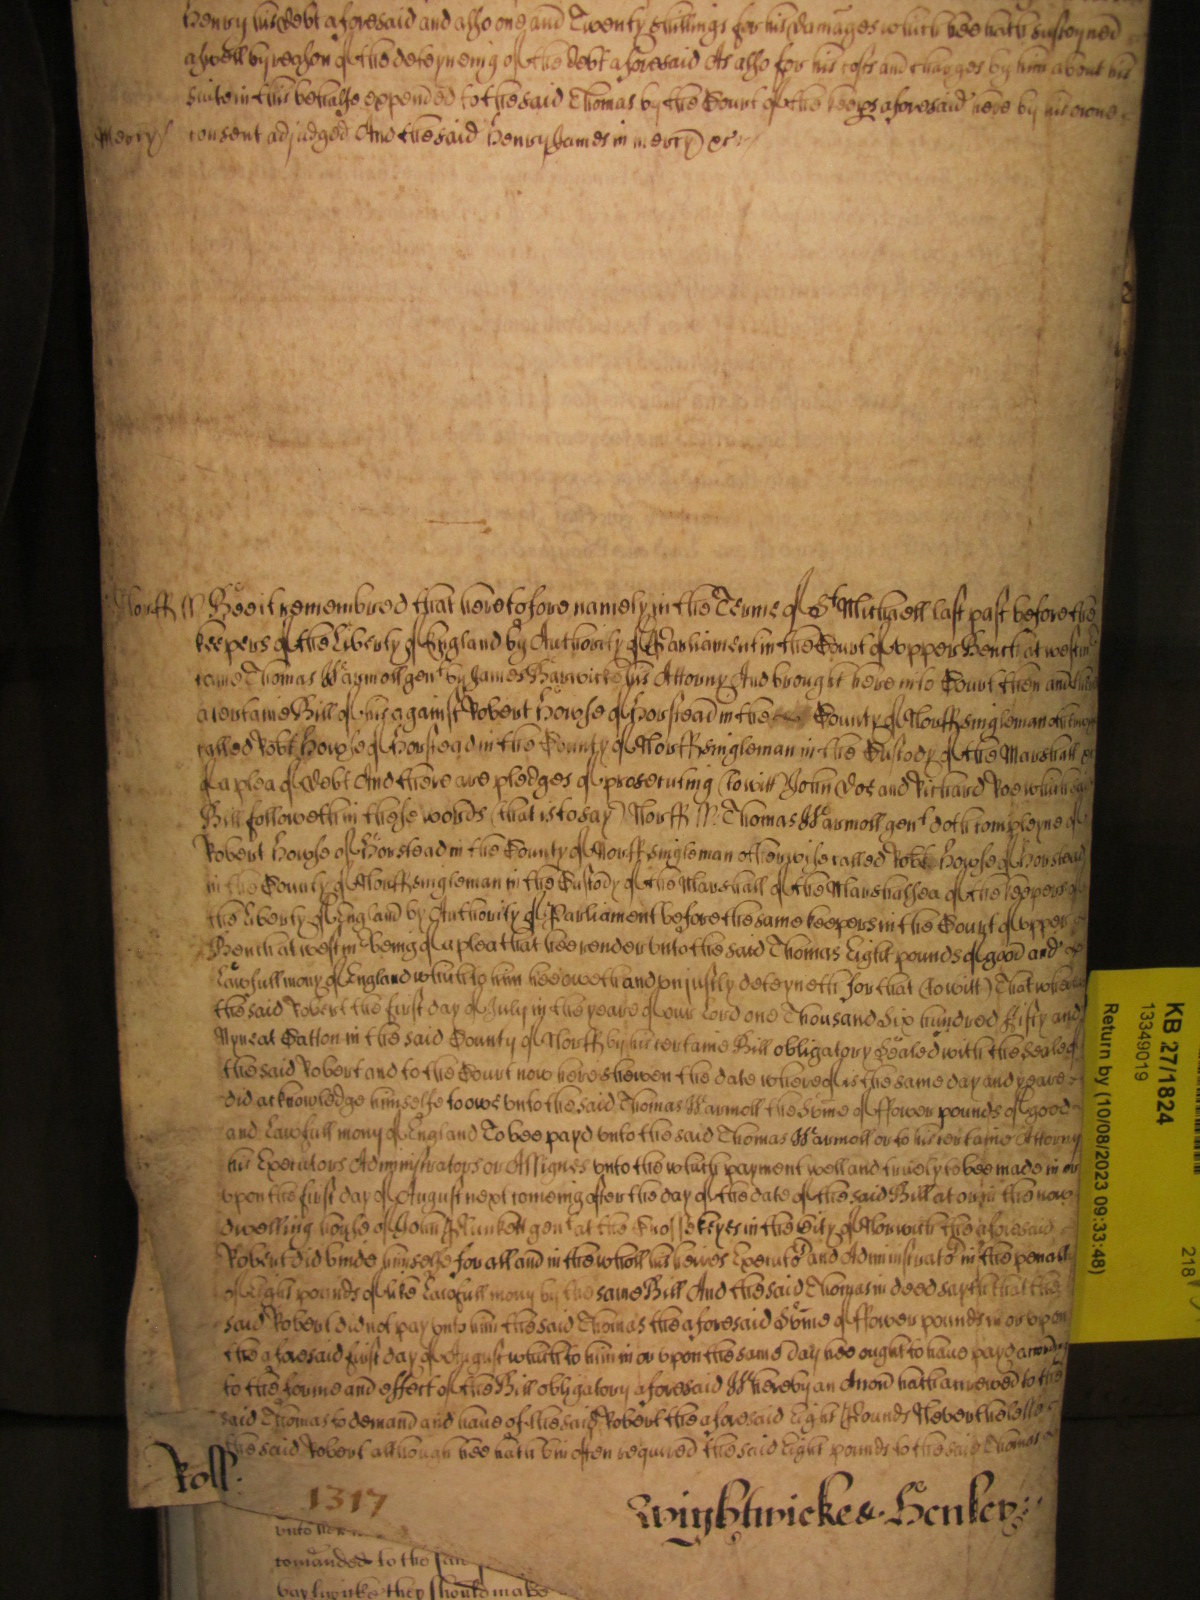 Henry his debt aforesaid and also one and Twenty shillings for his damages which hee hath susteyned
aswell by reason of the deteyneing of the debt aforesaid As also for his costs and charges by him about his
suite in this behalfe expended to the said Thomas by the Court of the keeps aforesaid here by his owne
Mercy consent adjudged And the said Henry James in mercy &c
Norff Bee it remembred that heretofore namely in the Terme of St Michaell last past before the
keepers of the Liberty of England by Authority of Parliament in the Court of upper Bench at westmr
came Thomas Warmoll gent by James Barwicke his Attorny And brought here into Court then and there
a certaine Bill of his against Robert Howse of Horstead in the County of Norff singleman otherwise
called Robt Howse of Horstead in the County of Norff singleman in the Custody of the Marshall &c
of a plea of debt And there are pledges of prosecuting (to witt) John Doe and Richard Roe which
Bill followeth in these words (that is to say) Norff Thomas Warmoll gent doth compleyne of
Robert Howse of Horstead in the County of Norff singleman otherwise called Robt Howse of Horstead
in the County of Norff singleman in the Custody of the Marshall of the Marshalsea of the keepers of
the Liberty of England by Authority of Parliament before the same keepers in the Court of upper
Bench at westmr being of a plea that hee render unto the said Thomas Eight pounds of good and
Lawfull mony of England which to him hee oweth and unjustly deteyneth for that (to witt) That whereas
the said Robert the first day of July in the yeare of our Lord one Thousand Six hundred Fifty and
Nyne at Catton in the said County of Norff by his certaine Bill obligatory Sealed with the seale of
the said Robert and to the Court now here shewen the date whereof is the same day and yeare
did acknowledge himselfe to owe unto the said Thomas Warmoll the Sume of ffower pounds of good
and Lawfull mony of England To bee payd unto the said Thomas Warmoll or to his certaine Attorny
his Executors Administrators or Assignes unto the which payment well and truely to bee made in or
upon the first day of August next comeing after the day of the date of the said Bill at or in the now
dwelling house of John Plunkett gent at the Crosse keyes in the City of Norwich the aforesaid
Robert did binde himselfe for all and in the wholl his heires Executrs and Administratrs in the penall
of Eight pounds of like Lawfull mony by the same Bill And the said Thomas in deed sayth that the
said Robert did not pay unto him the said Thomas the aforesaid Sume of ffower pounds in or upon
the aforesaid first day of August which to him in or upon the same day hee ought to have payd according
to the forme and effect of the Bill obligatory aforesaid Whereby an Accon hath accrewed to the
said Thomas to demand and have of the said Robert the aforesaid Eight Pounds Neverthelesse
the said Robert although hee hath bin often required the said Eight pounds to the said Thomas
Roll.
1317
Wightwicke & Henley
unto
comanded to the
baylwicke they should make
KB 27/1824
13349019
Return by (10/08/2023 09:33:48)
218